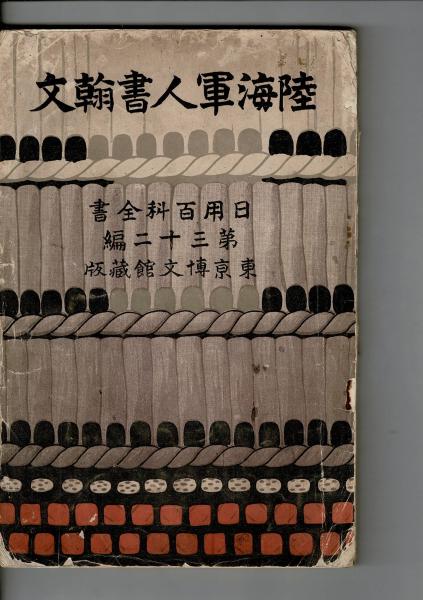 陸海軍人書翰文
日用百科全書
第三十二編
東京博文館藏版